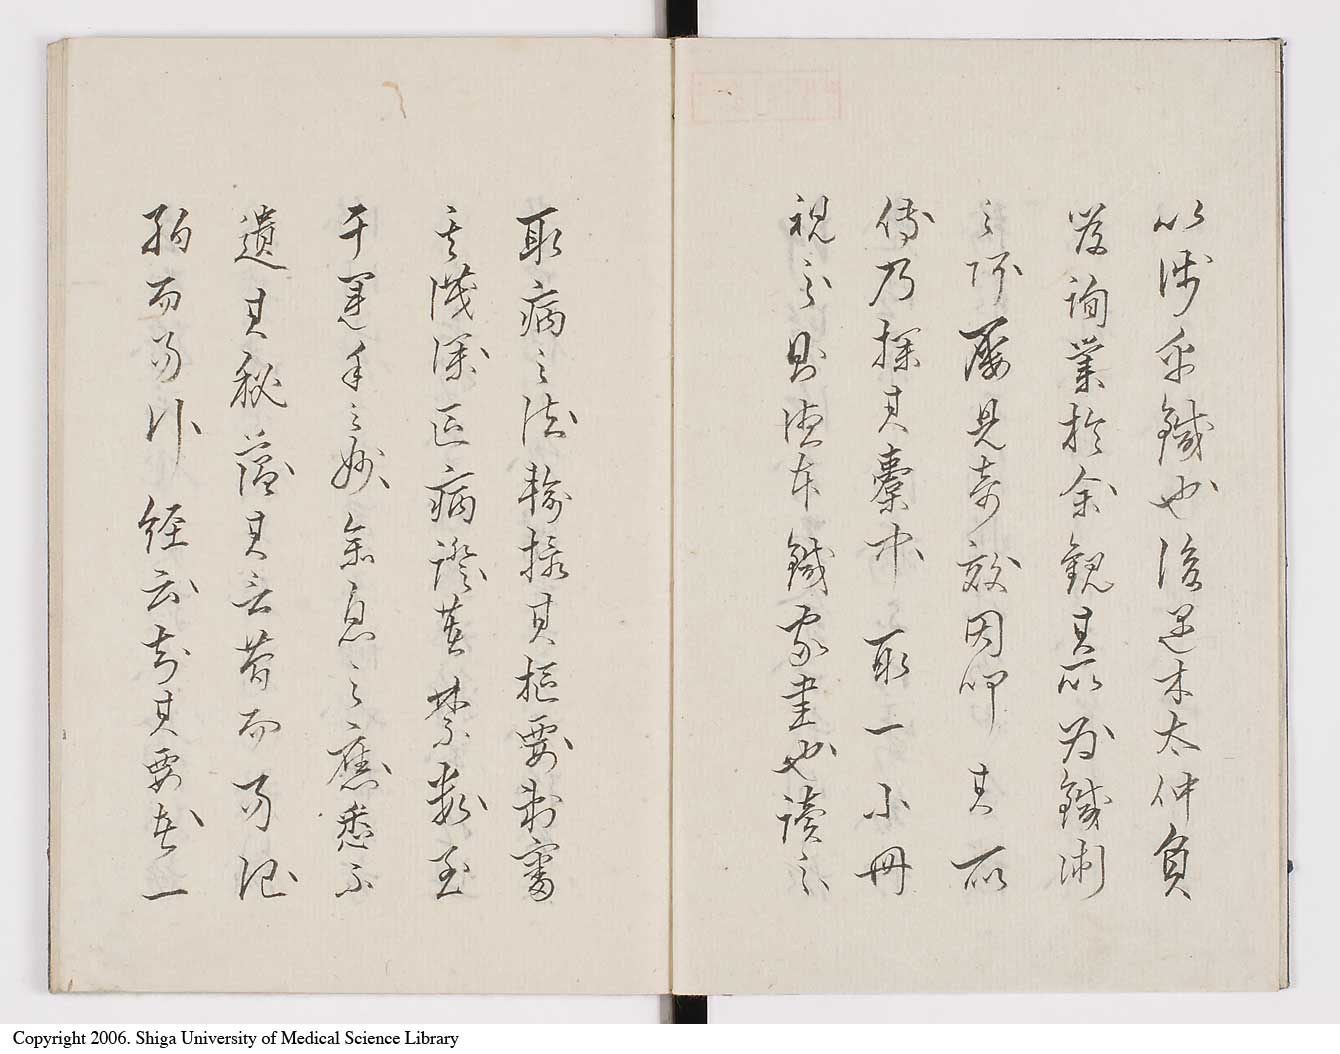 以涉乎鍼也後延木太仲負
笈詢業於余觀其所為鍼術
之際屢見奇效因叩其所
傳乃探其囊中取一小冊
視之則濟本鍼家書也讀之
取病之法輸採其樞要刺審
其淺深區病證其禁數至
于運手之妙氣息之應悉不
遺其秘蘊其言簡而易記
約而易行 經云知其要者一
Copyright 2006. Shiga University of Medical Science Library